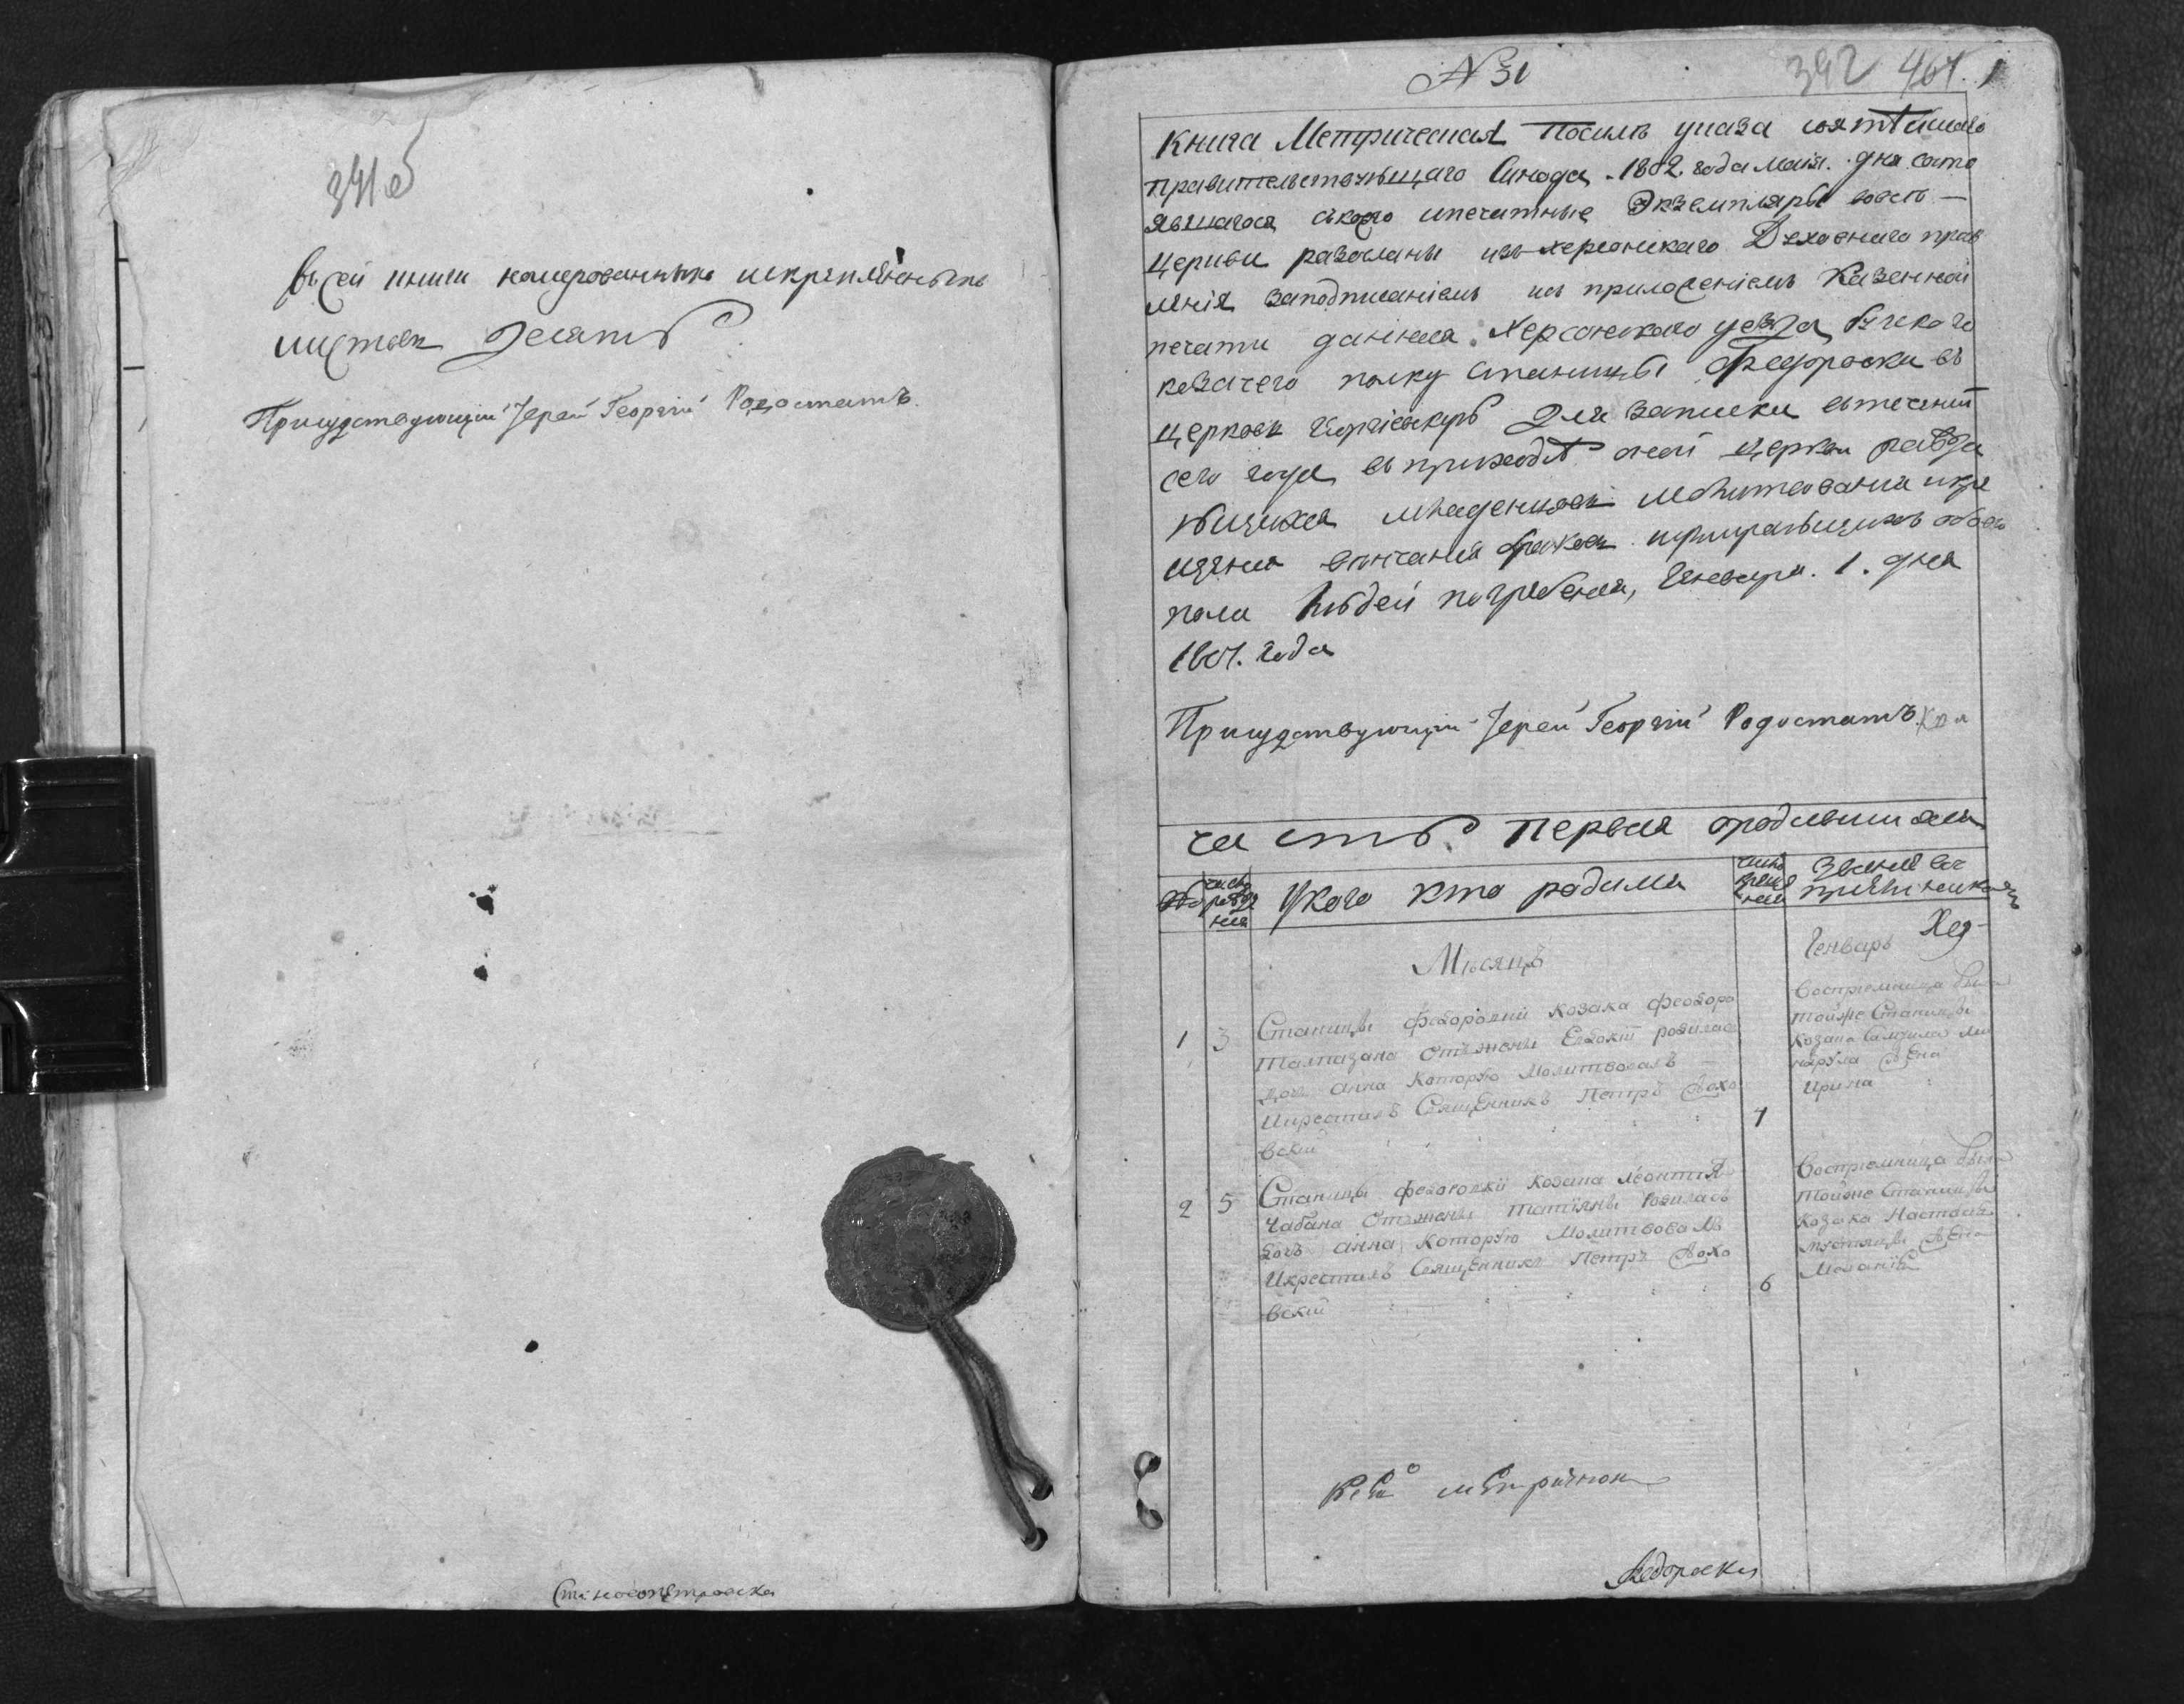 341 об
въ сей книги номерованныхъ искрепленныхъ
листовъ десять
Присудствующий Іерей Георгий Родостатъ.
Ст: новопетровска
№ 31
392 407. 1
Книга Метрическая Посилъ указа святѣйшаго
правительствующаго Синода 1802. года Маія. дня состо
явшагося скоего ипечатные Экземпляры вовсѣ —
церкви разосланы изъ херсонскаго Духовнаго прав
ленія заподписаніемъ исъ приложеніемъ Казенной
печати данная Херсонского уезда бугского
козачего полку станицы Федоровки въ
церковь Для записки втечений
сего года въ приходѣ оной церкви ражда
ющихся младенцовъ молитвования икре
щения венчания браковъ иумираьщихъ обоего
пола людей погребения, Генваря. 1. дня
1807. года
Присудствующий Іерей Георгий Родостатъ
часть первая ородившихся
№ число рожде ния
Укого кто родился
число креще ния
Звание вос приѣмниковъ
Мѣсяцъ
Генварь
1 3
Станицы Федоровки козака Феодора
Талмазана отъжены Евдокіи родилась
дочь анна которую Молитвовалъ
Икрестилъ Священникъ Петръ Ляхо
вский
7
Восприемница была
тойже Станицы
козака Самуила
жена
Ирина
2 5
Станицы Федоровки козака Леонтия
Чабана отъжены татияны родилась
дочь анна которую Молитвовалъ
Икрестилъ Священникъ Петръ Ляхо
вский
6
Восприемница была
тойже Станицы
козака
жена
Мелания
Федоровки